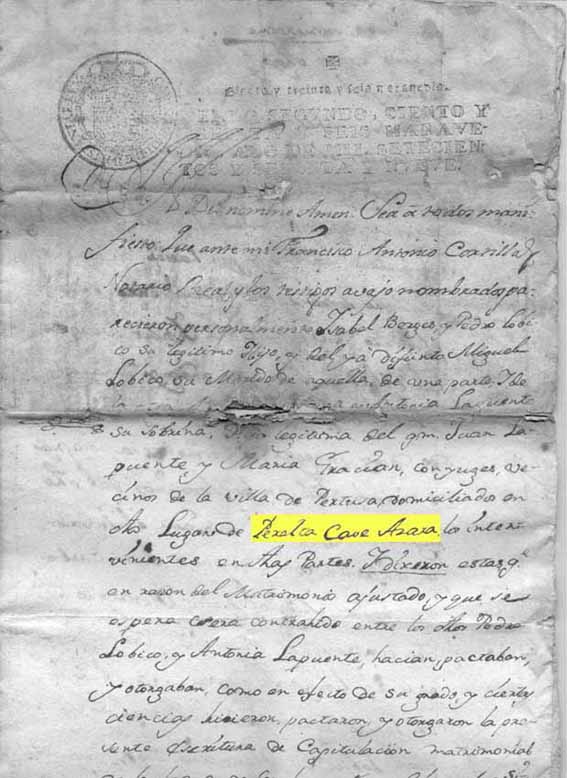 Ciento y treinta y seis maravedis.
SELLO SEGUNDO, CIENTO Y
SEIS MARAVE-
AÑO DE MIL SETECIEN-
TOS Y Y NUEVE.
Dei nomine Amen. Sea à todos mani-
fiesto Que ante mi Francisco Antonio
Notario Real, y los testigos avajo nombrados pa-
recieron personalmente Isabel Borges, y Pedro Lobi-
co su legitimo Hijo, y del ya difunto Miguel
Lobico, su Marido de aquella, de una parte, I de
la Antonia Lapuente
su sobrina, legitima del qm. Juan La-
puente, y Maria Gracian, conyuges, ve-
cinos de la villa de Pertusa, domiciliado en
dho Lugar de Peralta Cave Azara, los inter-
vinientes en dhas Partes. I dixeron estas q.
en razon del Matrimonio ajustado, y que se
espera contrahido entre los dhos Pedro
Lobico, y Antonia Lapuente, hacian, pactaban,
y otorgaban, como en efecto de su grado, y ciertas
ciencias hicieron, pactaron, y otorgaron la pre-
sente Escritura de Capitulacion matrimonial